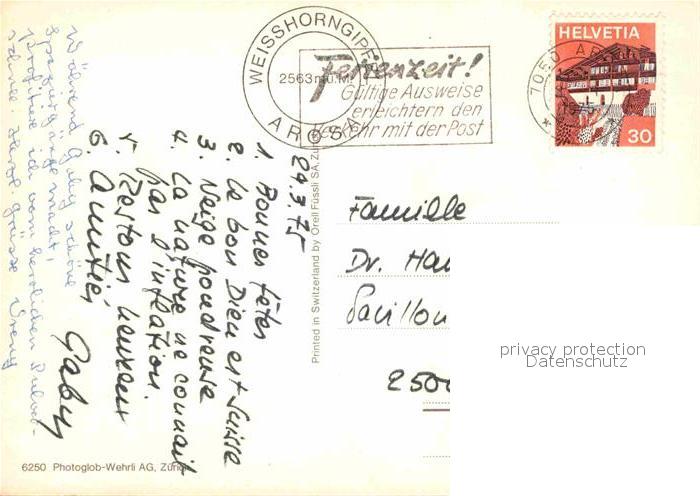 WEISSHORNGIPFEL
2563 m ü. M.
AROSA
Ferienzeit!
Gültige Ausweise
erleichtern den
Verkehr mit der Post
HELVETIA
30
7050 AROSA
24.3.75
1. Bonnes fêtes
2. Le bon Dieu est Suisse
3. Neige poudreuse
4. La nature ne connaît
pas l'inflation.
5. Restons heureux
6. Amitiés
Gaby
Während Gaby schöne
Spaziergänge macht,
profitiere ich vom herrlichen Pulver-
schnee. Herzl. Grüsse Vreny
Printed in Switzerland by Orell Füssli SA, Zu
Famille
Dr. Han
Pavillon
250
privacy protection
Datenschutz
6250 Photoglob-Wehrli AG, Zürich